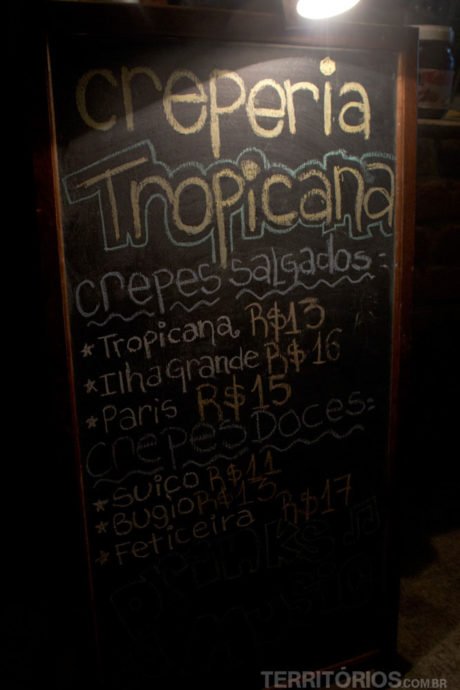 creperia
Tropicana
crepes salgados:
*Tropicana R$13
*Ilha grande R$16
*Paris R$15
crepes Doces:
*suiço R$11
*Bugio R$13
*Feticeira R$17
DRINKS
TERRITÓRIOS.COM.BR